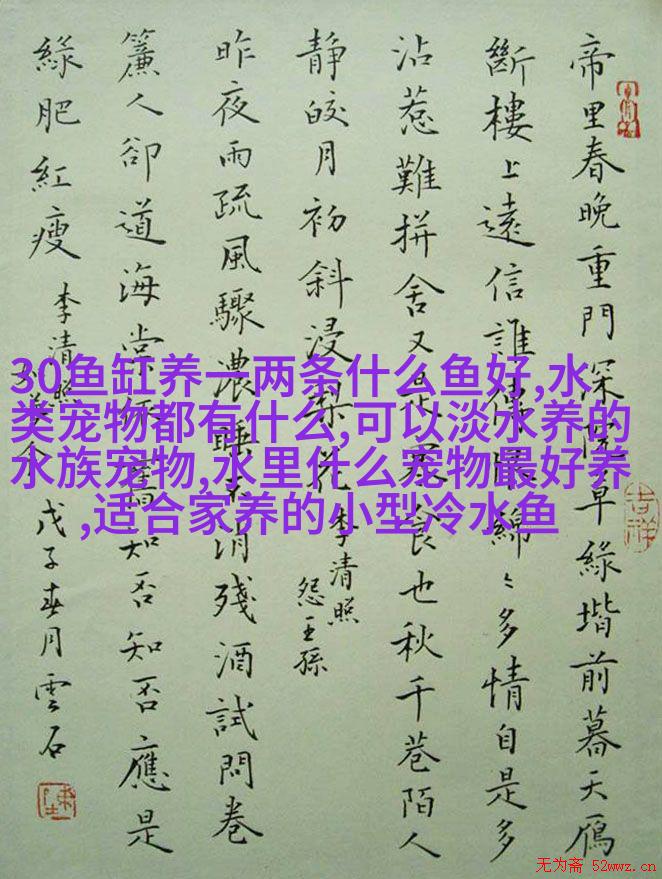 帝里春晚重門深院草綠堦前暮天鴈
斷樓上遠信誰傳恨綿〻多情自是多
沾惹難拼舍又是寒食也秋千巷陌人
靜皎月初斜浸梨花 李清照
怨王孫
昨夜雨疏風驟濃睡不消殘酒試問卷
簾人卻道海棠依舊知否知否應是
綠肥紅瘦 李清照
如夢令 戊子春月雲石
吉祥
30鱼缸养一两条什么鱼好,水
类宠物都有什么,可以淡水养的
水族宠物,水里什么宠物最好养
,适合家养的小型冷水鱼
无为斋 52wwz.cn